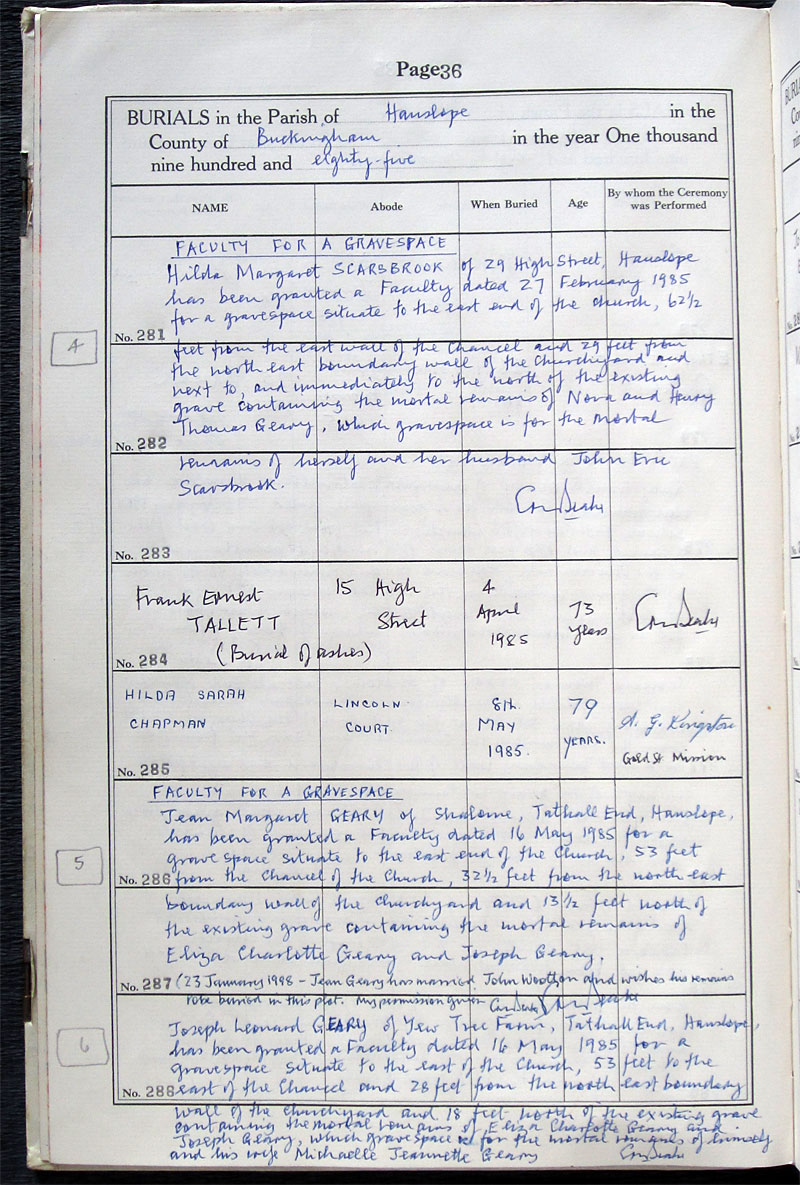 Page36
BURIALS in the Parish of Hanslope in the
County of Buckingham in the year One thousand
nine hundred and eighty-five
NAME Abode When Buried Age By whom the Ceremony was Performed
FACULTY FOR A GRAVESPACE
Hilda Margaret SCARSBROOK of 29 High Street, Hanslope
has been granted a Faculty dated 27 February 1985
for a gravespace situate to the east end of the church, 62½
No. 281
4
feet from the east wall of the Chancel and 29 feet from
the north east boundary wall of the Churchyard and
next to, and immediately to the north of the existing
grave containing the mortal remains of Nora and Henry
Thomas Geary, which gravespace is for the mortal
No. 282
remains of herself and her husband John Eric
Scarsbrook.
No. 283
Frank Ernest 15 High 4
TALLETT Street April 73
(Burial of ashes) 1985 years
No. 284
HILDA SARAH LINCOLN 8th 79
CHAPMAN COURT MAY A. G. Kingston
1985. YEARS. Gold St Mission
No. 285
FACULTY FOR A GRAVESPACE
Jean Margaret GEARY of Shalome, Tathall End, Hanslope,
has been granted a Faculty dated 16 May 1985 for a
grave space situate to the east end of the Church, 53 feet
5
No. 286 from the Chancel of the Church, 32½ feet from the north east
boundary wall of the Churchyard and 13½ feet north of
the existing grave containing the mortal remains of
Eliza Charlotte Geary and Joseph Geary.
No. 287 (23 January 1998 - Jean Geary has married John Wootton and wishes his remains
to be buried in this plot. My permission given
Joseph Leonard GEARY of Yew Tree Farm, Tathall End, Hanslope,
6
has been granted a Faculty dated 16 May 1985 for a
gravespace situate to the east of the Church, 53 feet to the
No. 288 east of the Chancel and 28 feet from the north east boundary
wall of the churchyard and 18 feet north of the existing grave
containing the mortal remains of Eliza Charlotte Geary and
Joseph Geary, which gravespace is for the mortal remains of himself
and his wife Michaelle Jeannette Geary